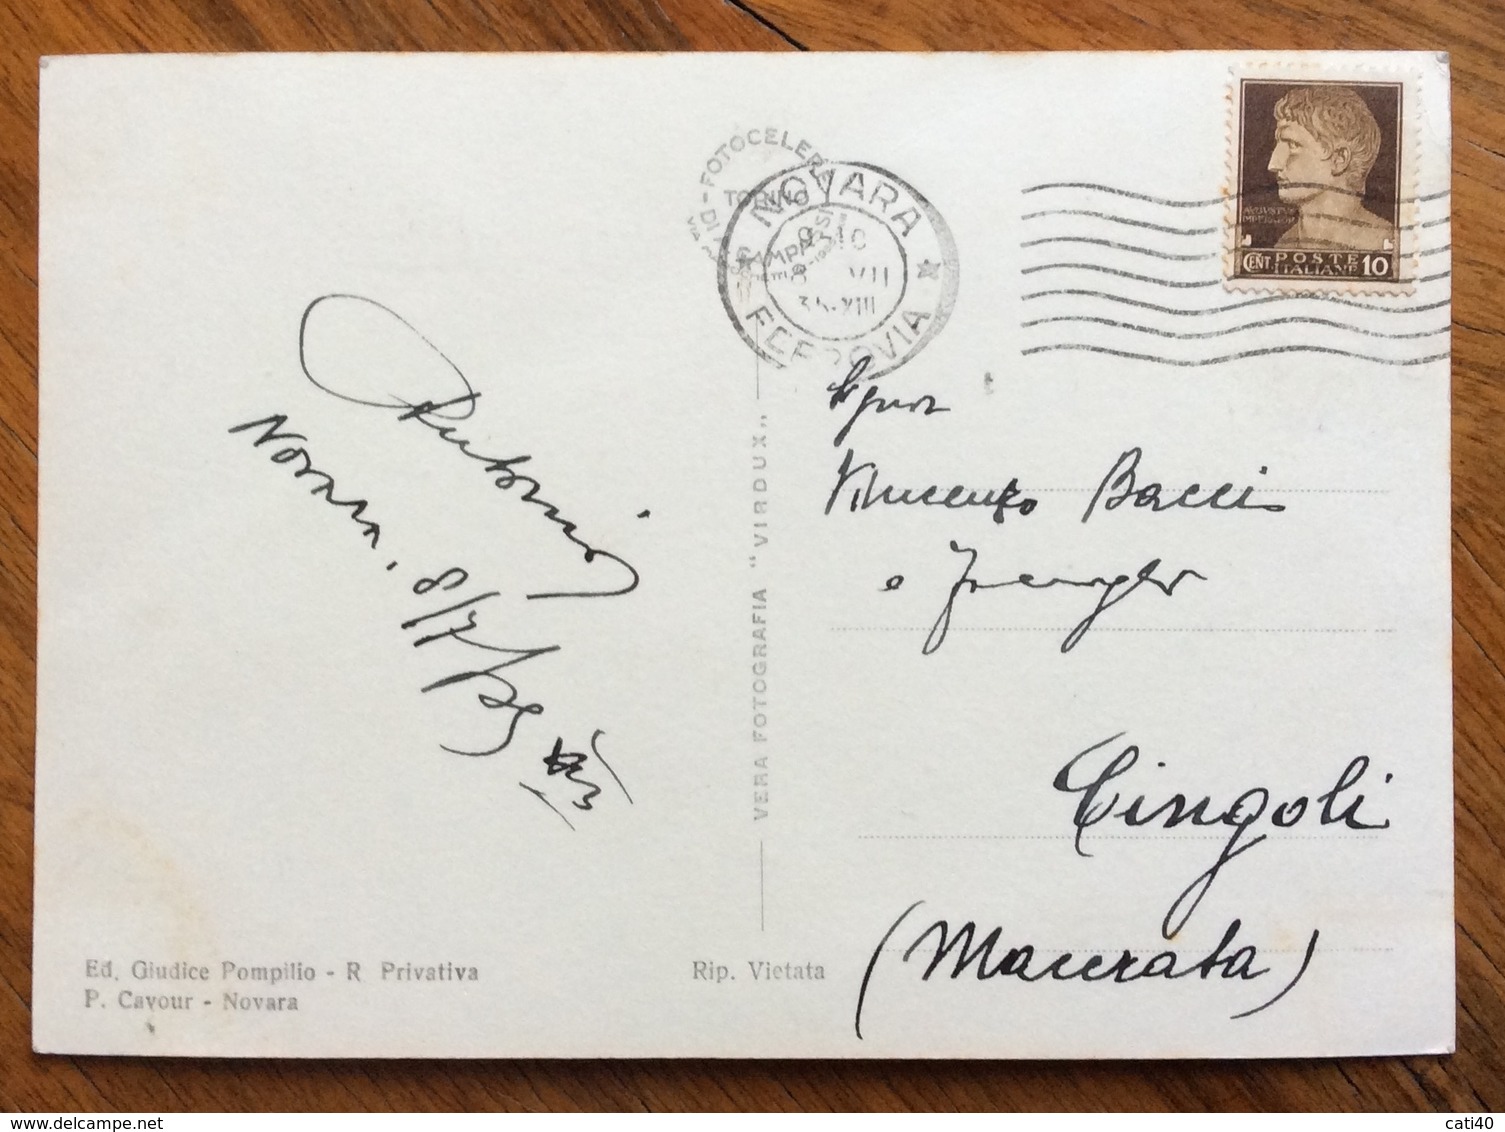 FOTOCELERE
TORINO
NOVARA
VII
35-XIII
FERROVIA
AUGUSTVS
CENT. POSTE ITALIANE 10
Signor
Vincenzo Bacci
e
Cingoli
(Macerata)
Novara. 8/7/35 XIII
VERA FOTOGRAFIA "VIRDUX"
Ed. Giudice Pompilio - R Privativa
P. Cavour - Novara
Rip. Vietata
cati40